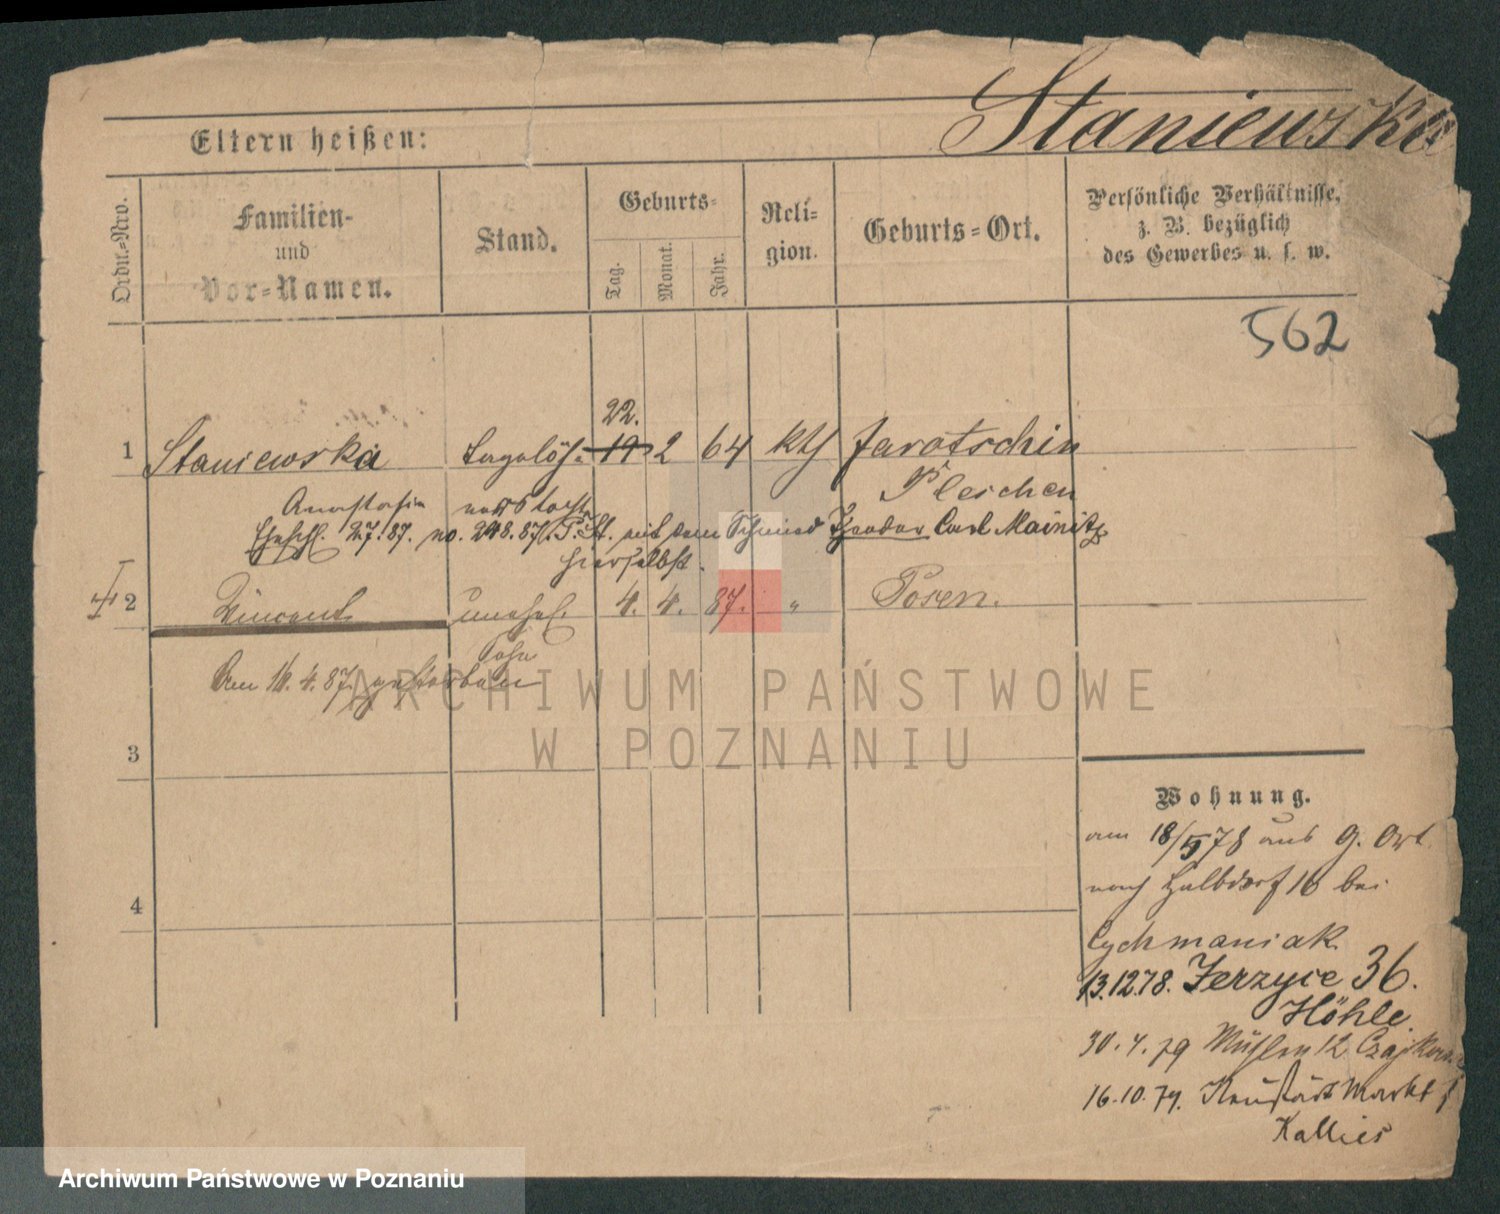 Staniewska
Eltern heißen:
Ordn.-Nro.
Familien-
und
Vor-Namen.
Stand.
Geburts-
Tag.
Monat.
Jahr.
Reli-
gion.
Geburts-Ort.
Persönliche Verhältnisse,
z. B. bezüglich
des Gewerbes u. s. w.
562
22.
1 Staniewska Tagelöh- 19 2 64 kth Jarotschin
Anastasia Pleschen
Ehesch. 2.7.87. no. 248.87. P. St. mit dem Schmied Theodor Carl Mainitz
hierselbst.
2 Vincent unehel. 4. 4. 87. " Posen.
Sohn
Am 16.4.87. gestorben
3
4
Wohnung.
am 18/5 78 aus g. Ort
nach Halbdorf 16 bei
Cychmaniak
13.12.78. Jerzyce 36.
Höhle
30.4.79 Mühlen 12
16.10.79. Neustädt Markt
Kallies
ARCHIWUM PAŃSTWOWE
W POZNANIU
Archiwum Państwowe w Poznaniu